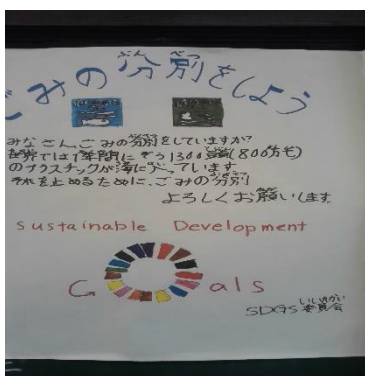 ごみの分別をしよう
みなさん、ごみの分別をしていますか?
世界では1年間にぞう1300 (800万t)
のプラスチックが海に
それを止めるために、ごみの分別
よろしくお願いします
Sustainable Development
Goals
SDGs 委員会